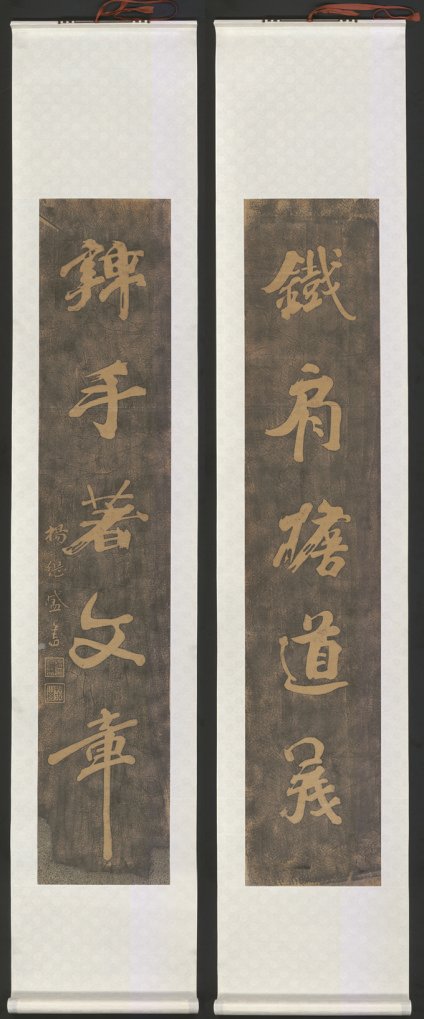 鐵肩擔道義
辢手著文章
楊繼盛書